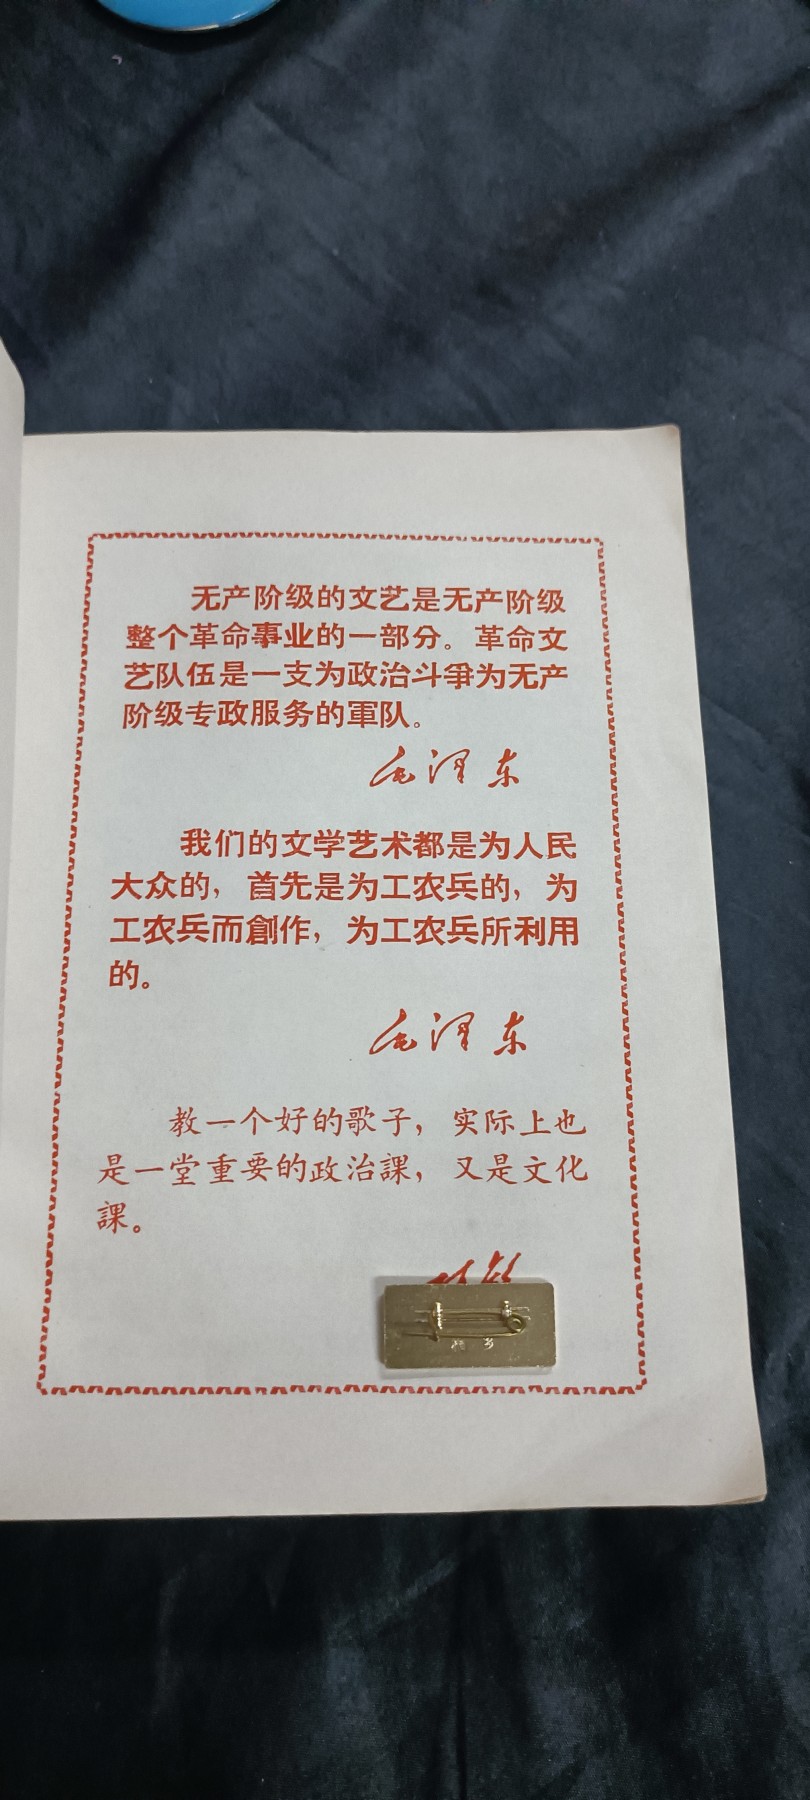 无产阶级的文艺是无产阶级
整个革命事业的一部分。革命文
艺队伍是一支为政治斗爭为无产
阶级专政服务的軍队。
毛泽东
我们的文学艺术都是为人民
大众的，首先是为工农兵的，为
工农兵而創作，为工农兵所利用
的。
毛泽东
教一个好的歌子，实际上也
是一堂重要的政治課，又是文化
課。